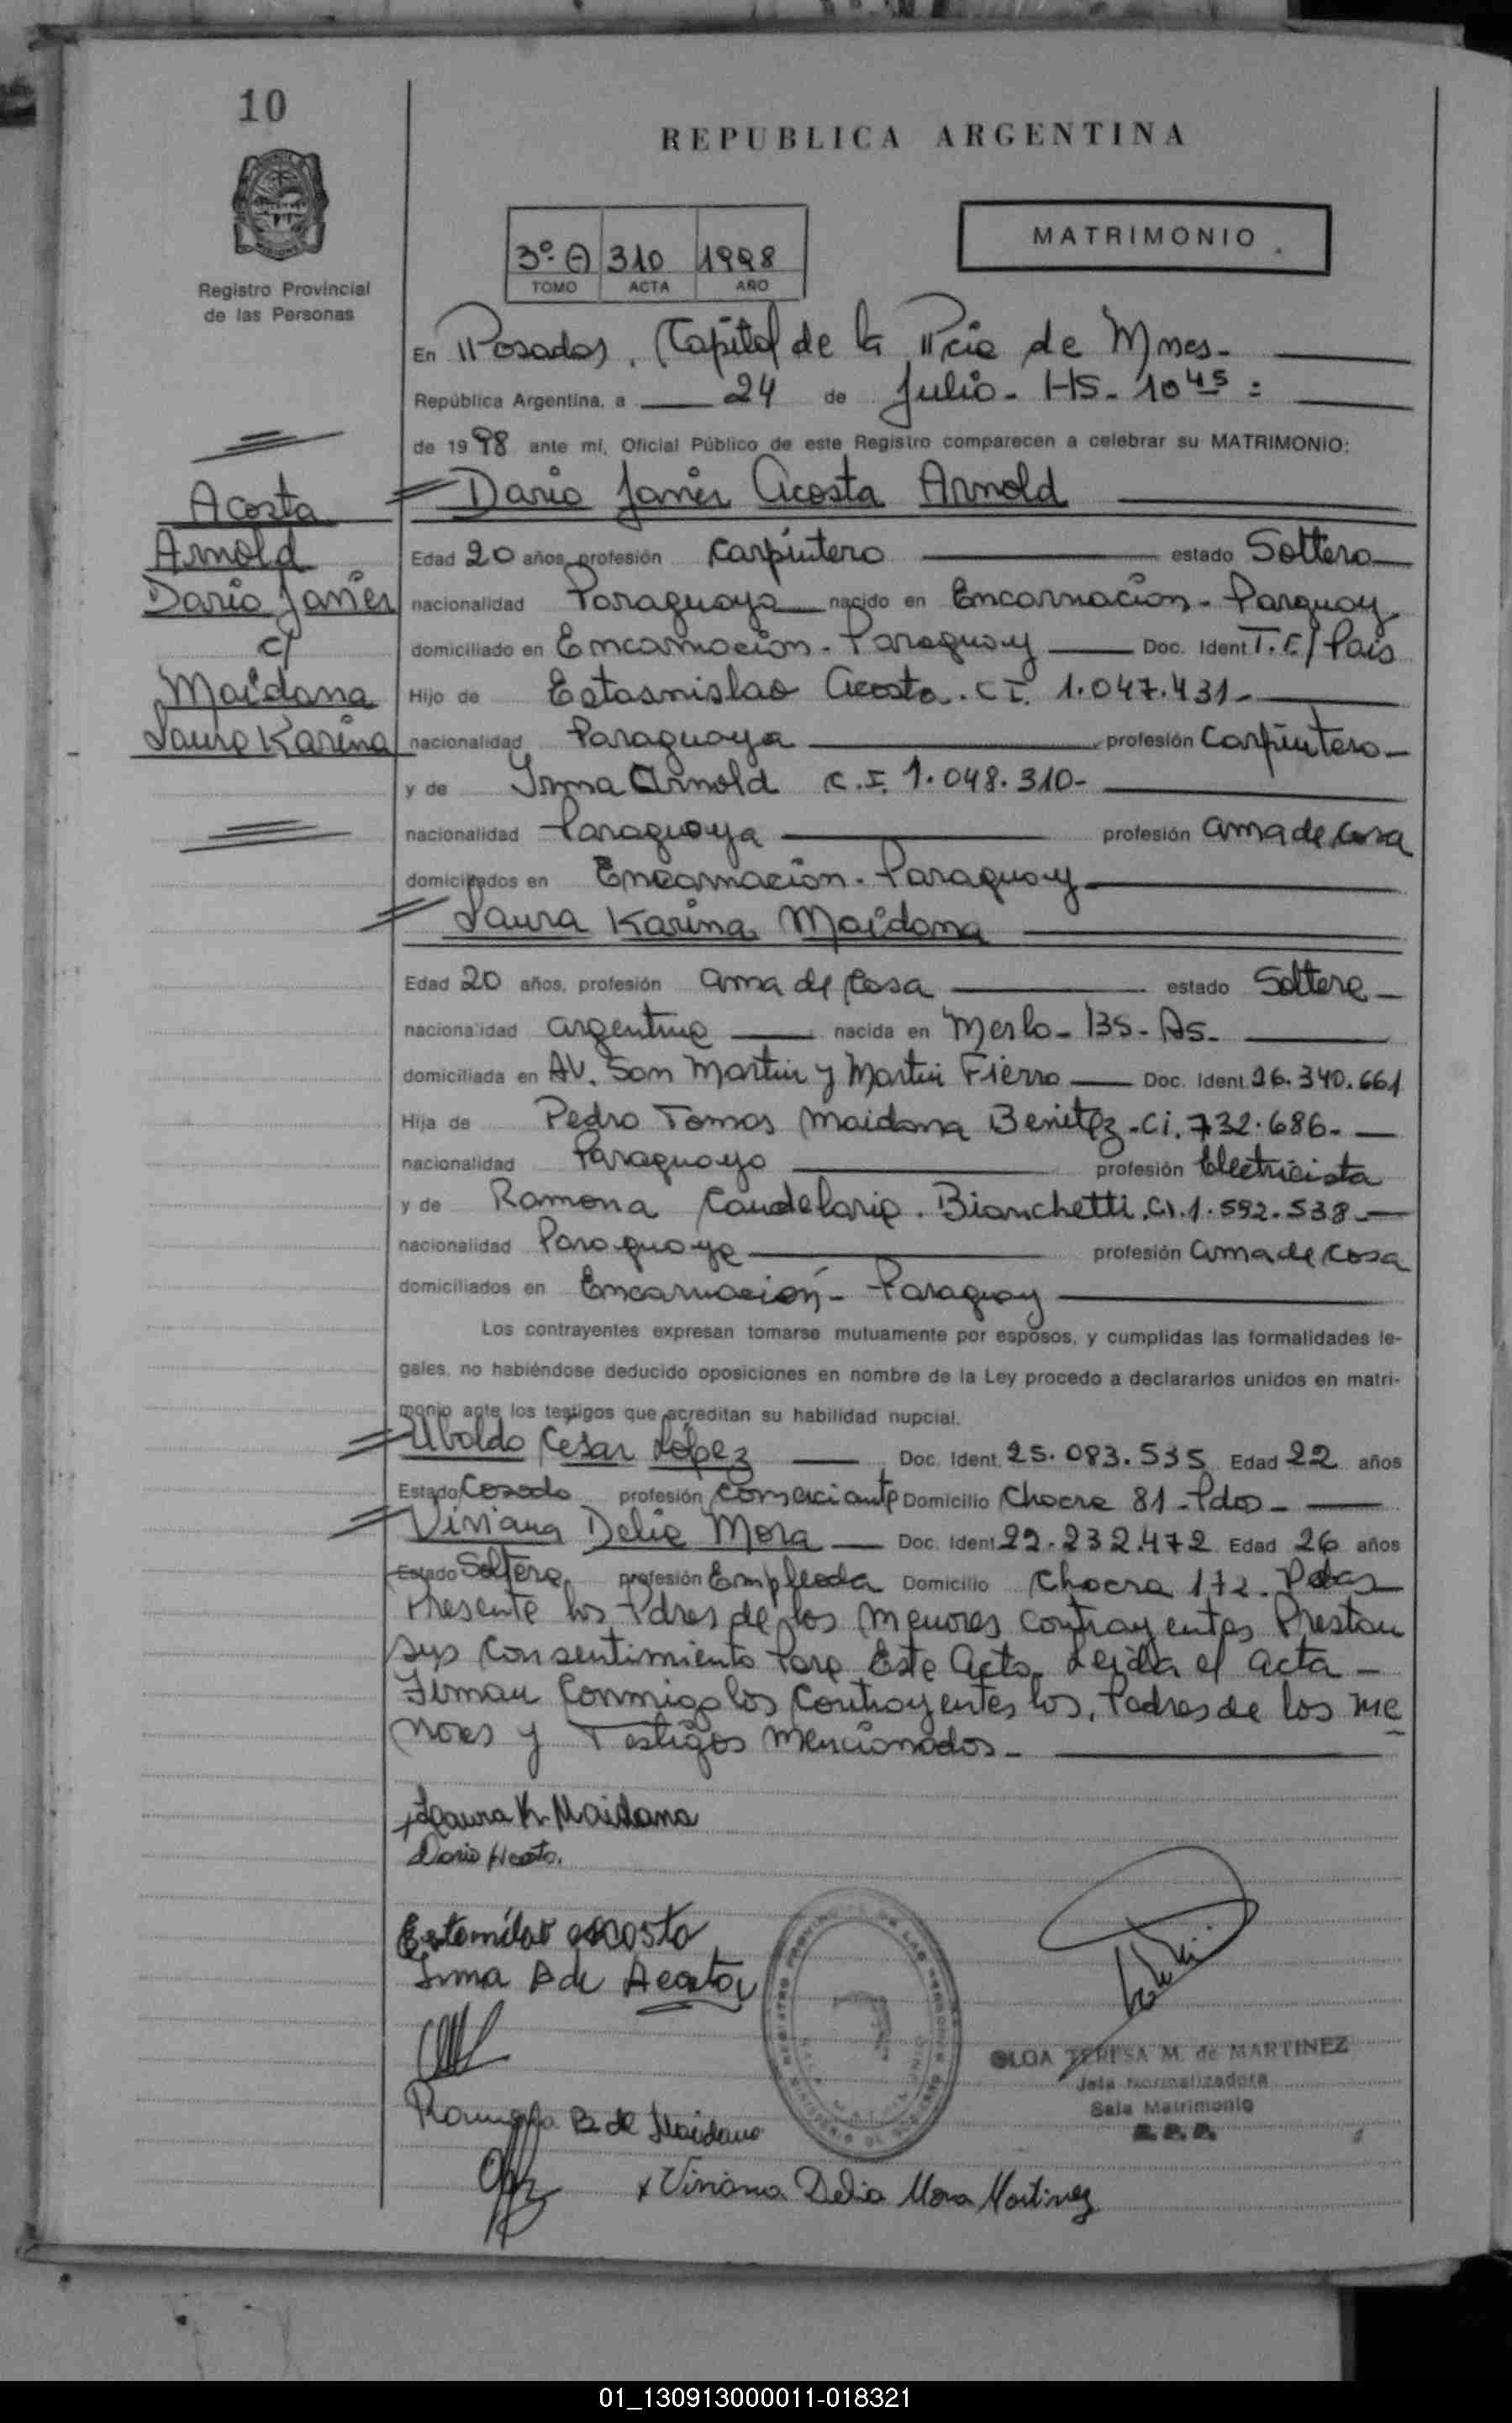 10
REPUBLICA ARGENTINA
MATRIMONIO
3º A 310 1998
TOMO ACTA AÑO
Registro Provincial
de las Personas
En Posadas, Capital de la Pcia de Mnes-
República Argentina, a 24 de Julio - HS - 10 45 =
de 1998 ante mí, Oficial Público de este Registro comparecen a celebrar su MATRIMONIO:
Acosta
Arnold
Dario Javier
c/
Maidana
Laura Karina
Dario Javier Acosta Arnold
Edad 20 años, profesión Carpintero estado Soltero
nacionalidad Paraguaya nacido en Encarnacion - Parguay
domiciliado en Encarnacion - Paraguay Doc. Ident. T.E/ Pais
Hijo de Estasnislao Acosta. CI. 1.047.431-
nacionalidad Paraguaya profesión Carpintero-
y de Irma Arnold C.I. 1.048.310-
nacionalidad Paraguaya profesión ama de casa
domiciliados en Encarnacion - Paraguay-
Laura Karina Maidana
Edad 20 años, profesión ama de casa estado Soltera-
nacionalidad argentina nacida en Merlo - BS - As-
domiciliada en AV. San Martin y Martin Fierro Doc. Ident. 26.340.661
Hija de Pedro Tomas Maidana Benitez - Ci. 732.686-
nacionalidad Paraguayo profesión Electricista
y de Ramona Candelaria. Bianchetti. CI. 1.592.538-
nacionalidad Paraguaya profesión ama de casa
domiciliados en Encarnación - Paraguay
Los contrayentes expresan tomarse mutuamente por esposos, y cumplidas las formalidades le-
gales, no habiéndose deducido oposiciones en nombre de la Ley procedo a declararlos unidos en matri-
monio ante los testigos que acreditan su habilidad nupcial.
Ubaldo César López Doc. Ident. 25.083.535 Edad 22 años
Estado Casado profesión Comerciante Domicilio Chacra 81 - Pdas-
Viviana Delia Mora Doc. Ident. 22.232.472 Edad 26 años
Estado Soltera profesión Empleada Domicilio Chacra 172. Pdas
Presente los Pdres de los menores contrayentes Prestan
sus consentimiento Para Este Acto. Leida el acta-
Firman Conmigo los Contrayentes los, Padres de los me
nores y Testigos mencionados-
Laura K. Maidana
Dario Acosta.
Acosta
Irma A de Acosta
B. de Maidana
x Viviana Delia Mora Martinez
OLGA TERESA M. de MARTINEZ
Jefa Normalizadora
Sala Matrimonio
R. P. P.
01_130913000011-018321